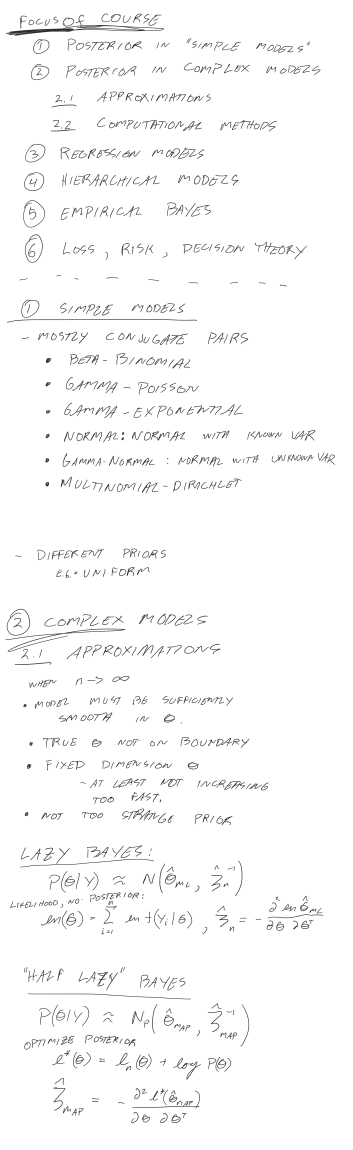 FOCUS OF COURSE
① POSTERIOR IN "SIMPLE MODELS"
② POSTERIOR IN COMPLEX MODELS
2.1 APPROXIMATIONS
2.2 COMPUTATIONAL METHODS
③ REGRESSION MODELS
④ HIERARCHICAL MODELS
⑤ EMPIRICAL BAYES
⑥ LOSS, RISK, DECISION THEORY
① SIMPLE MODELS
- MOSTLY CONJUGATE PAIRS
• BETA-BINOMIAL
• GAMMA-POISSON
• GAMMA-EXPONENTIAL
• NORMAL: NORMAL WITH KNOWN VAR
• GAMMA-NORMAL: NORMAL WITH UNKNOWN VAR
• MULTINOMIAL-DIRICHLET
- DIFFERENT PRIORS
E.G. • UNIFORM
② COMPLEX MODELS
2.1 APPROXIMATIONS
WHEN n → ∞
• MODEL MUST BE SUFFICIENTLY
SMOOTH IN θ.
• TRUE θ NOT ON BOUNDARY
• FIXED DIMENSION θ
- AT LEAST NOT INCREASING
TOO FAST.
• NOT TOO STRANGE PRIOR
LAZY BAYES:
P(θ|Y) ≈ N(θ̂_ML, Ĵ_n⁻¹)
LIKELIHOOD, NO POSTERIOR:
ℓn(θ) = Σ_{i=1}^n ln f(Y_i|θ), Ĵ_n = - ∂² ℓn θ̂_ML / ∂θ ∂θᵀ
"HALF LAZY" BAYES
P(θ|Y) ≈ N_P(θ̂_MAP, Ĵ_MAP⁻¹)
OPTIMIZE POSTERIOR
ℓ*(θ) = ℓ_n(θ) + log P(θ)
Ĵ_MAP = - ∂² ℓ*(θ̂_MAP) / ∂θ ∂θᵀ